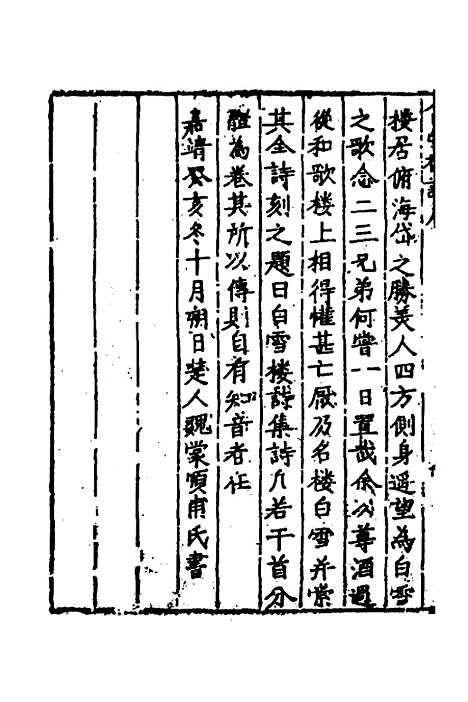 樓居俯海岱之勝美人四方側身遥望為白雪
之歌念二三兄弟何嘗一日置哉余以尊酒過
從和歌楼上相得懽甚亡厭及名楼白雪并棠
其全詩刻之題曰白雪楼詩集詩凡若干首分
體為卷其所以傳則自有知音者在
嘉靖癸亥冬十月朔日楚人魏棠順甫氏書